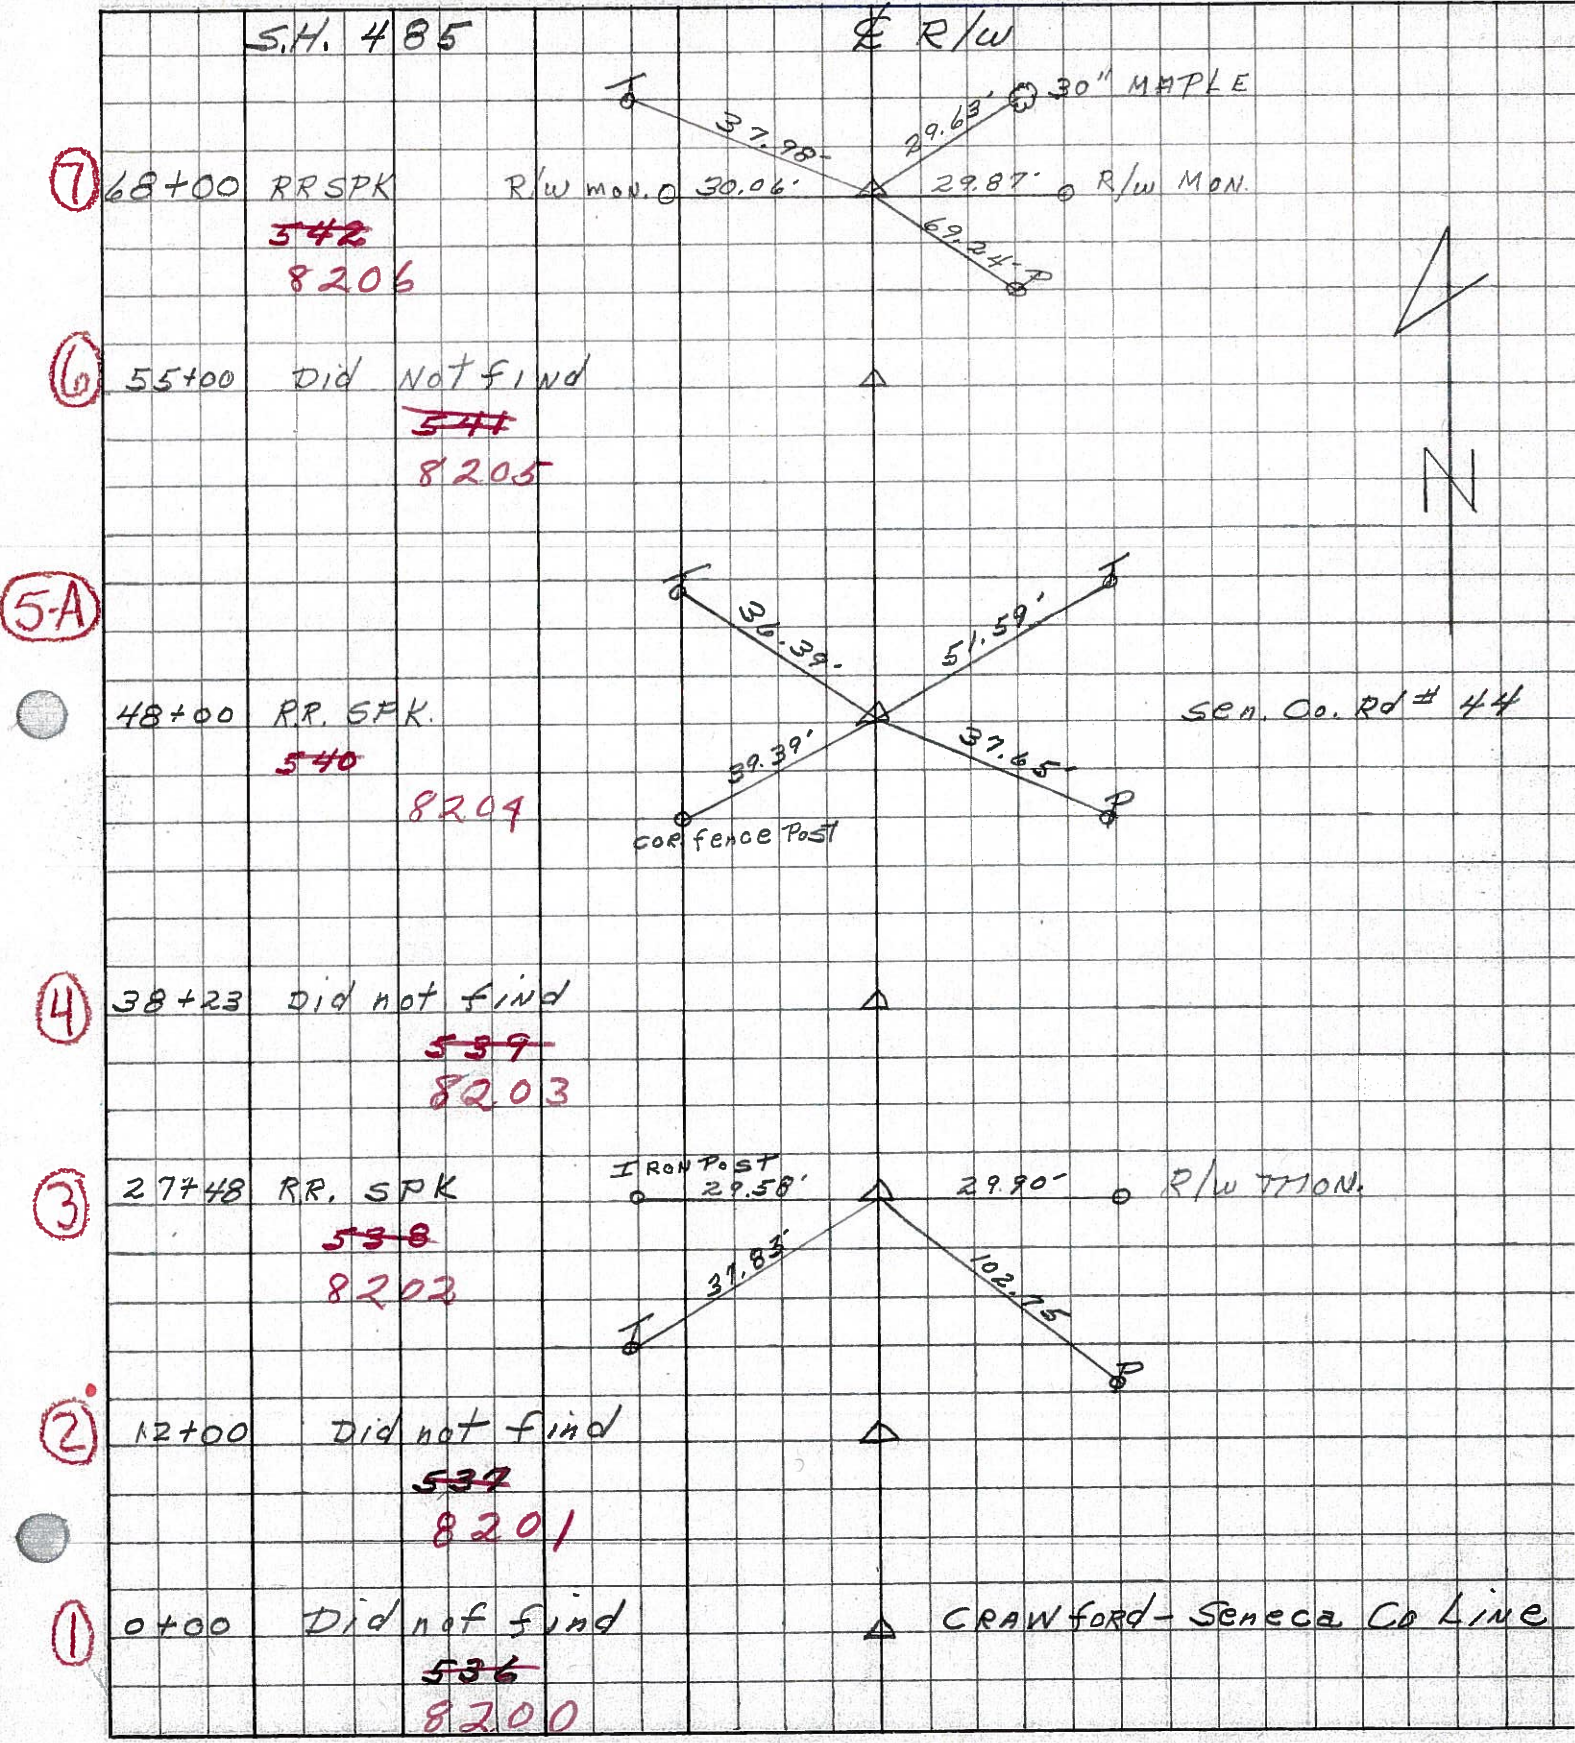 S.H. 485 ℄ R/W
T 30" MAPLE
37.98' 29.63'
7 68+00 RR SPK R/W MON. 30.06' 29.87' R/W MON.
542 69.24' P
8206
6 55+00 Did Not find
541
8205
N
5-A T T
36.39' 51.59'
48+00 R.R. SPK. Sen. Co. Rd # 44
540 39.39' 37.65'
8204 P
COR. fence Post
4 38+23 Did not find
539
8203
IRON POST
3 27+48 R.R. SPK 29.58' 29.90' R/W MON.
538
8202 37.83' 102.75
T P
2 12+00 Did not find
537
8201
1 0+00 Did not find CRAWford - Seneca Co Line
536
8200